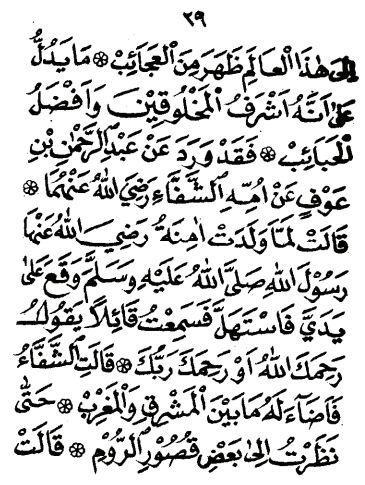 ٢٩
إِلَى هٰذَا الْعَالَمِ ظَهَرَ مِنَ الْعَجَائِبْ ۞ مَا يَدُلُّ
عَلَى أَنَّهُ أَشْرَفُ الْمَخْلُوقِينَ وَأَفْضَلُ
الْحَبَائِبْ ۞ فَقَدْ وَرَدَ عَنْ عَبْدِ الرَّحْمٰنِ بْنِ
عَوْفٍ عَنْ أُمِّهِ الشَّفَّاءِ رَضِيَ اللهُ عَنْهُمَا ۞
قَالَتْ لَمَّا وَلَدَتْ آمِنَةُ رَضِيَ اللهُ عَنْهَا
رَسُوْلَ اللهِ صَلَّى اللهُ عَلَيْهِ وَسَلَّمَ وَقَعَ عَلَى
يَدَيَّ فَاسْتَهَلَّ فَسَمِعْتُ قَائِلًا يَقُولُ
رَحِمَكَ اللهُ أَوْ رَحِمَكَ رَبُّكَ ۞ قَالَتِ الشَّفَّاءُ
فَأَضَاءَ لَهُ مَا بَيْنَ الْمَشْرِقِ وَالْمَغْرِبْ ۞ حَتَّى
نَظَرْتُ إِلَى بَعْضِ قُصُوْرِ الرُّوْمِ ۞ قَالَتْ